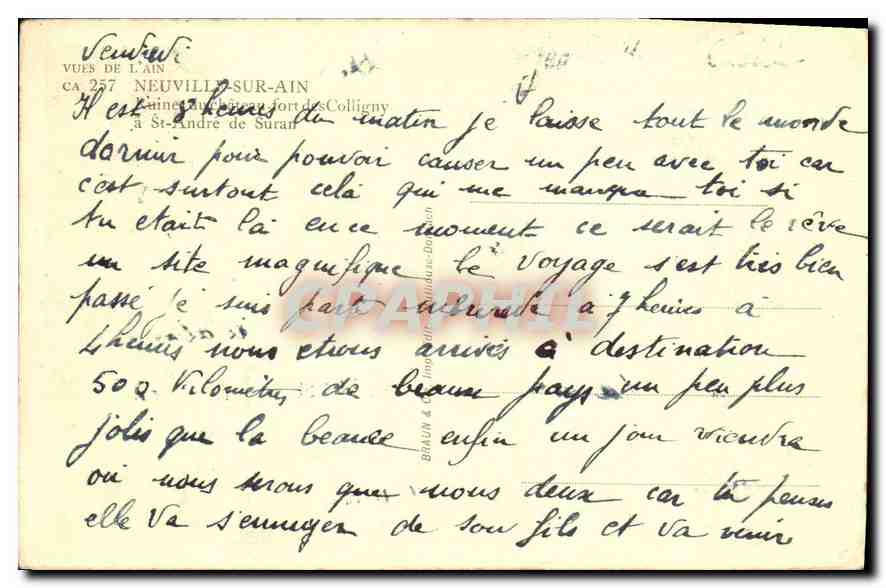 Vendredi
VUES DE L'AIN
CA 257 NEUVILLE-SUR-AIN
Ruines du château-fort des Colligny
à St-André de Suran
Il est 8 heures du matin je laisse tout le monde
dormir pour pouvoir causer un peu avec toi car
c'est surtout cela qui me manque toi si
tu etait là en ce moment ce serait le rêve
un site magnifique le voyage s'est très bien
passé je suis parti a 7 heures à
4 heures nous etions arrivés à destination
500 Kilomètres de beaux pays un peu plus
jolis que la beauce enfin un jour viendra
ou nous serons que nous deux car tu penses
elle va s'ennuyer de son fils et va venir
BRAUN & Cie Imp.
CPAPHIL